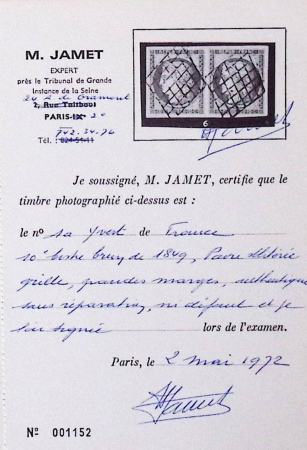 M. JAMET
EXPERT
près le Tribunal de Grande
Instance de la Seine
2, Rue Taitbout
PARIS-IX 2e
742.34.76
Tél. : 824-51-11
6
Je soussigné, M. JAMET, certifie que le
timbre photographié ci-dessus est :
le nº 1a Yvert de France
10c bistre brun de 1849, Paire oblitérée
grille, grandes marges, authentique
sans réparation, ni défaut et je
l'ai signée lors de l'examen.
Paris, le 2 mai 1972
Nº 001152